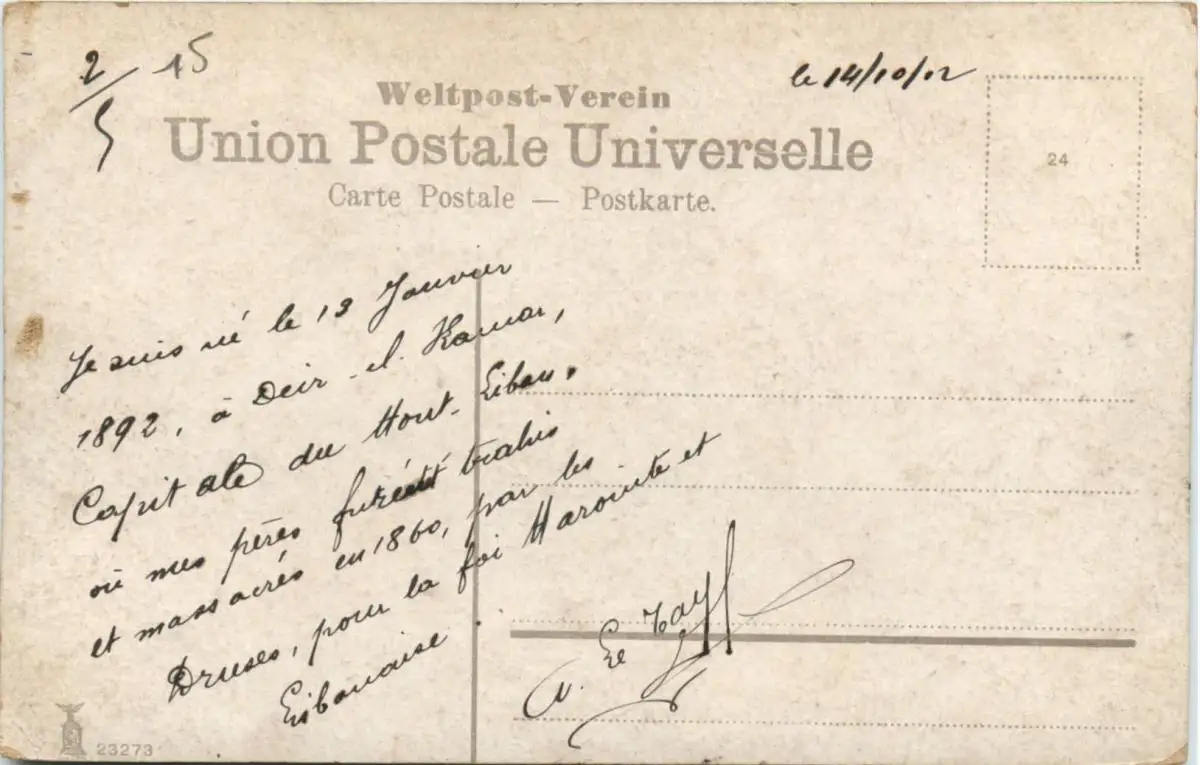 2/5 15
le 14/10/12
Weltpost-Verein
Union Postale Universelle
Carte Postale — Postkarte.
24
Je suis né le 13 Janvier
1892, à Deir-el-Kamar,
Capitale du Mont-Liban,
où mes pères furent trahis
et massacrés en 1860, par les
Druses, pour la foi Maronite et
Libanaise
23273